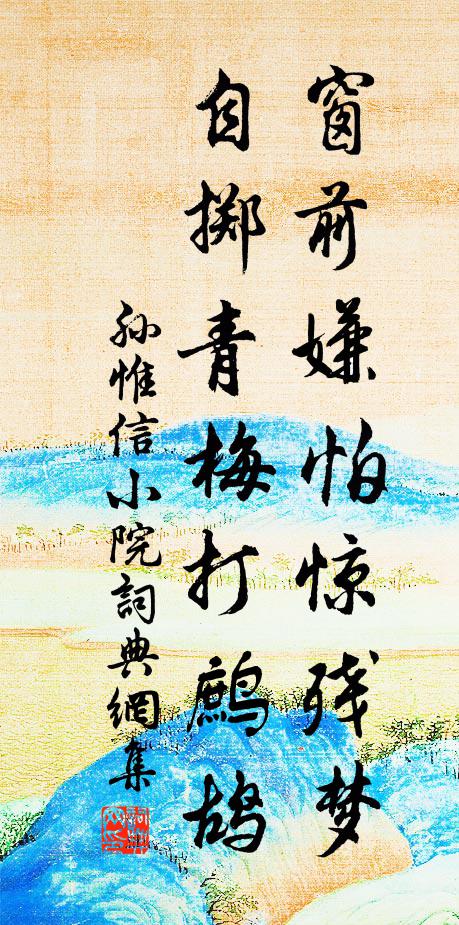 窗前嫌怕惊残梦
自掷青梅打鹧鸪
孙惟信小院詞典網集